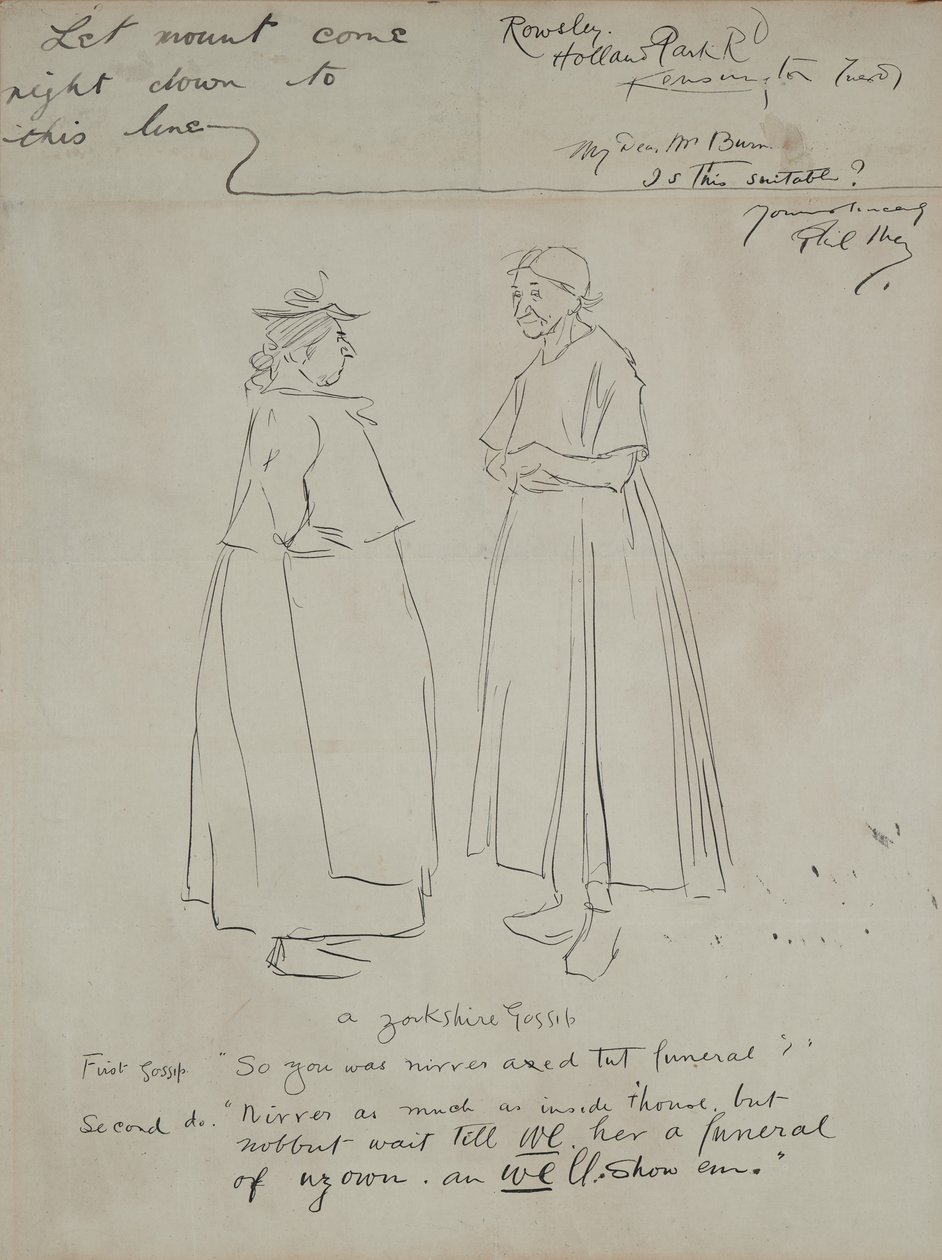 Let mount come
right down to
this line
Rowsley.
Holland Park Rd
Kensington Tuesd
My Dear Mr Burn.
Is this suitable?
Yours sincerely
Phil May
a Yorkshire Gossip
First Gossip. "So you was nivver axed tut funeral?"
Second do. "Nivver as much as inside t'house. but
nobbut wait till we her a funeral
of uz own. an we'll. show em."